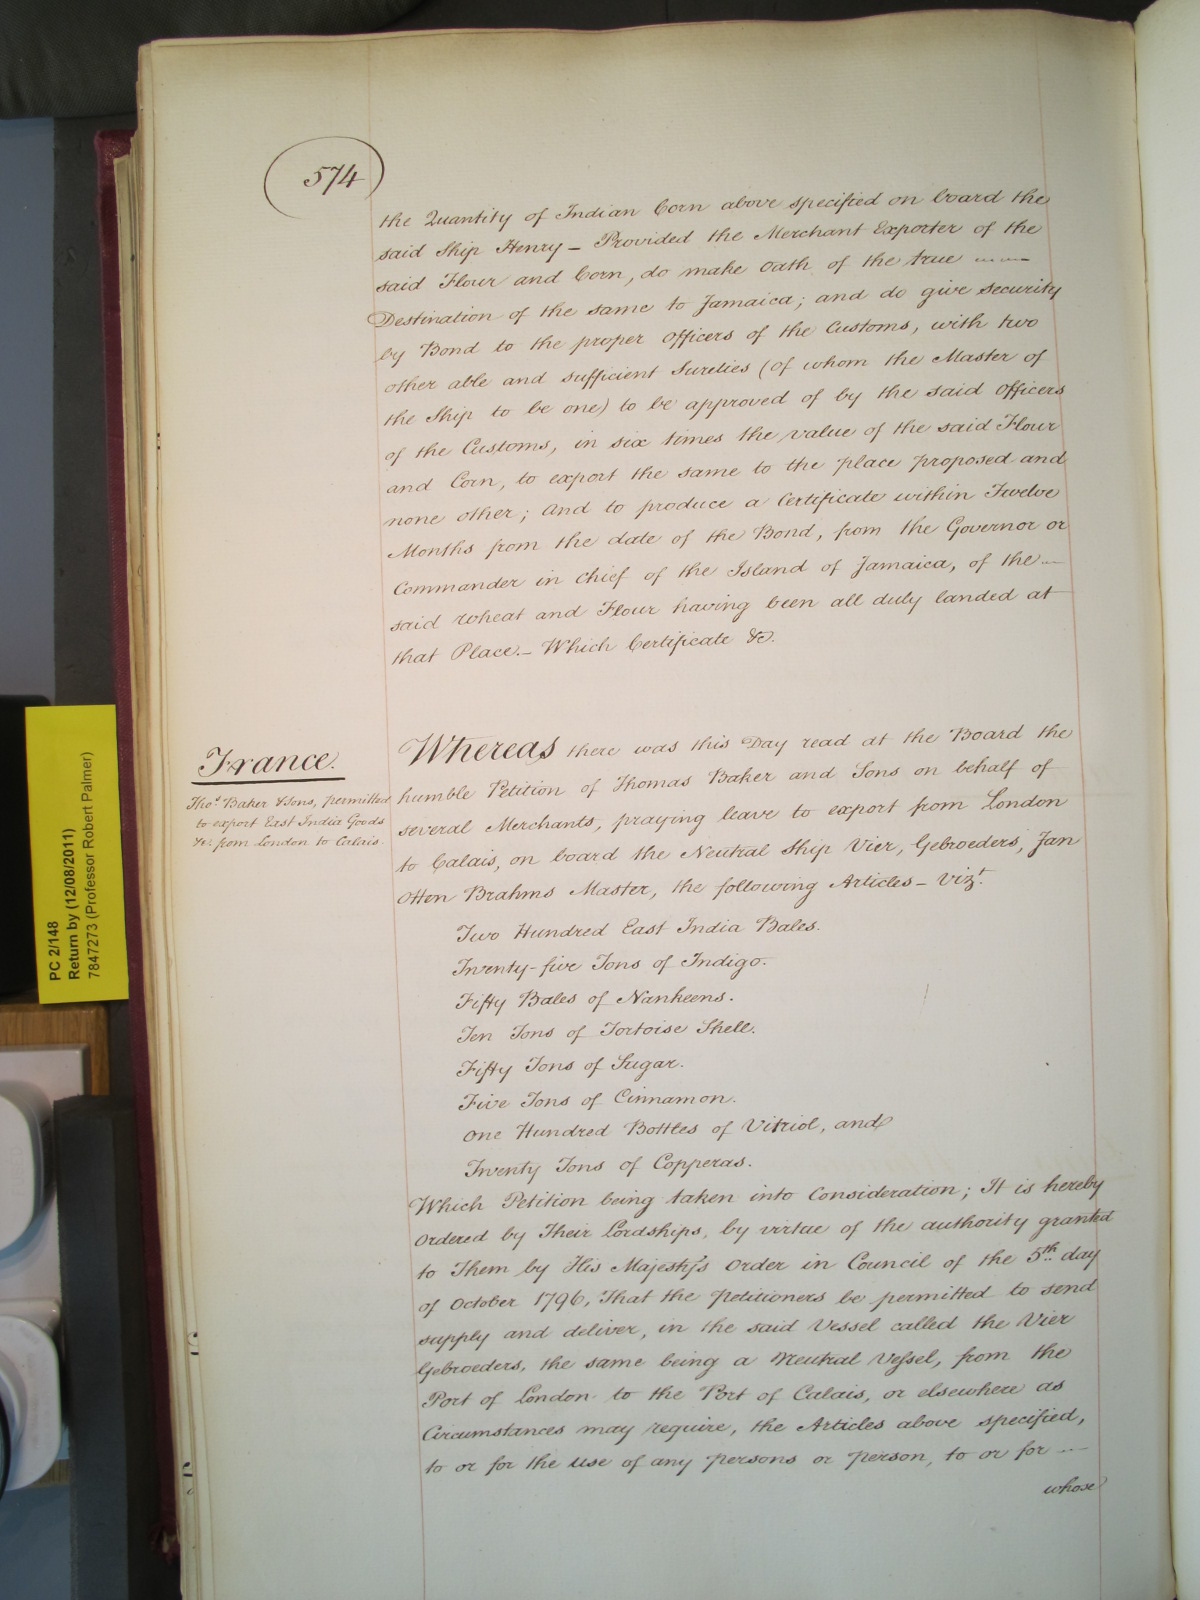 574
the Quantity of Indian Corn above specified on board the
said Ship Henry – Provided the Merchant Exporter of the
said Flour and Corn, do make Oath of the true
Destination of the same to Jamaica; and do give security
by Bond to the proper Officers of the Customs, with two
other able and sufficient Sureties (of whom the Master of
the Ship to be one) to be approved of by the said Officers
of the Customs, in six times the value of the said Flour
and Corn, to export the same to the place proposed and
none other; And to produce a Certificate within Twelve
Months from the date of the Bond, from the Governor or
Commander in Chief of the Island of Jamaica, of the
said Wheat and Flour having been all duly landed at
that Place. – Which Certificate &c.
France.
Thos. Baker & Sons, permitted
to export East India Goods
&c. from London to Calais.
Whereas there was this Day read at the Board the
humble Petition of Thomas Baker and Sons on behalf of
several Merchants, praying leave to export from London
to Calais, on board the Neutral Ship Vier, Gebroeders, Jan
Otten Brahms Master, the following Articles – Vizt.
Two Hundred East India Bales.
Twenty-five Tons of Indigo.
Fifty Bales of Nankeens.
Ten Tons of Tortoise Shell.
Fifty Tons of Sugar.
Five Tons of Cinnamon.
One Hundred Bottles of Vitriol, and
Twenty Tons of Copperas.
Which Petition being taken into Consideration; It is hereby
Ordered by Their Lordships, by virtue of the authority granted
to Them by His Majesty's Order in Council of the 5th. day
of October 1796, That the Petitioners be permitted to send
supply and deliver, in the said Vessel called the Vier
Gebroeders, the same being a Neutral Vessel, from the
Port of London to the Port of Calais, or elsewhere as
Circumstances may require, the Articles above specified,
to or for the use of any persons or person, to or for
whose
PC 2/148
Return by (12/08/2011)
7847273 (Professor Robert Palmer)